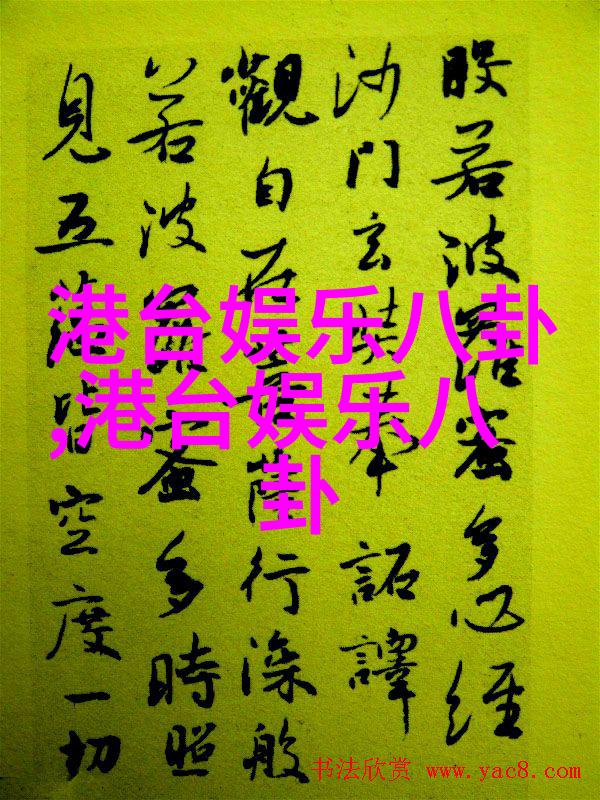 般若波羅蜜多心經
沙門玄奘奉 詔譯
觀自在菩薩行深般
若波羅蜜多時照
見五蘊皆空度一切
港台娱乐八卦
,港台娱乐八
卦
书法欣赏 www.yac8.com